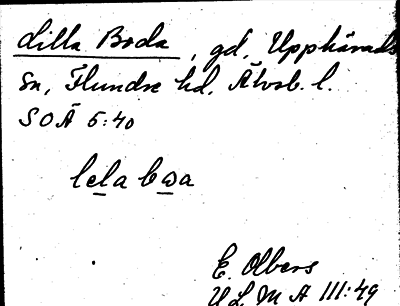 Lilla Boda, gd, Upphärads
sn, Flundre hd, Älvsb. l.
SOÄ 5:40
lela bωa
E. Olbers
ULMA III:49